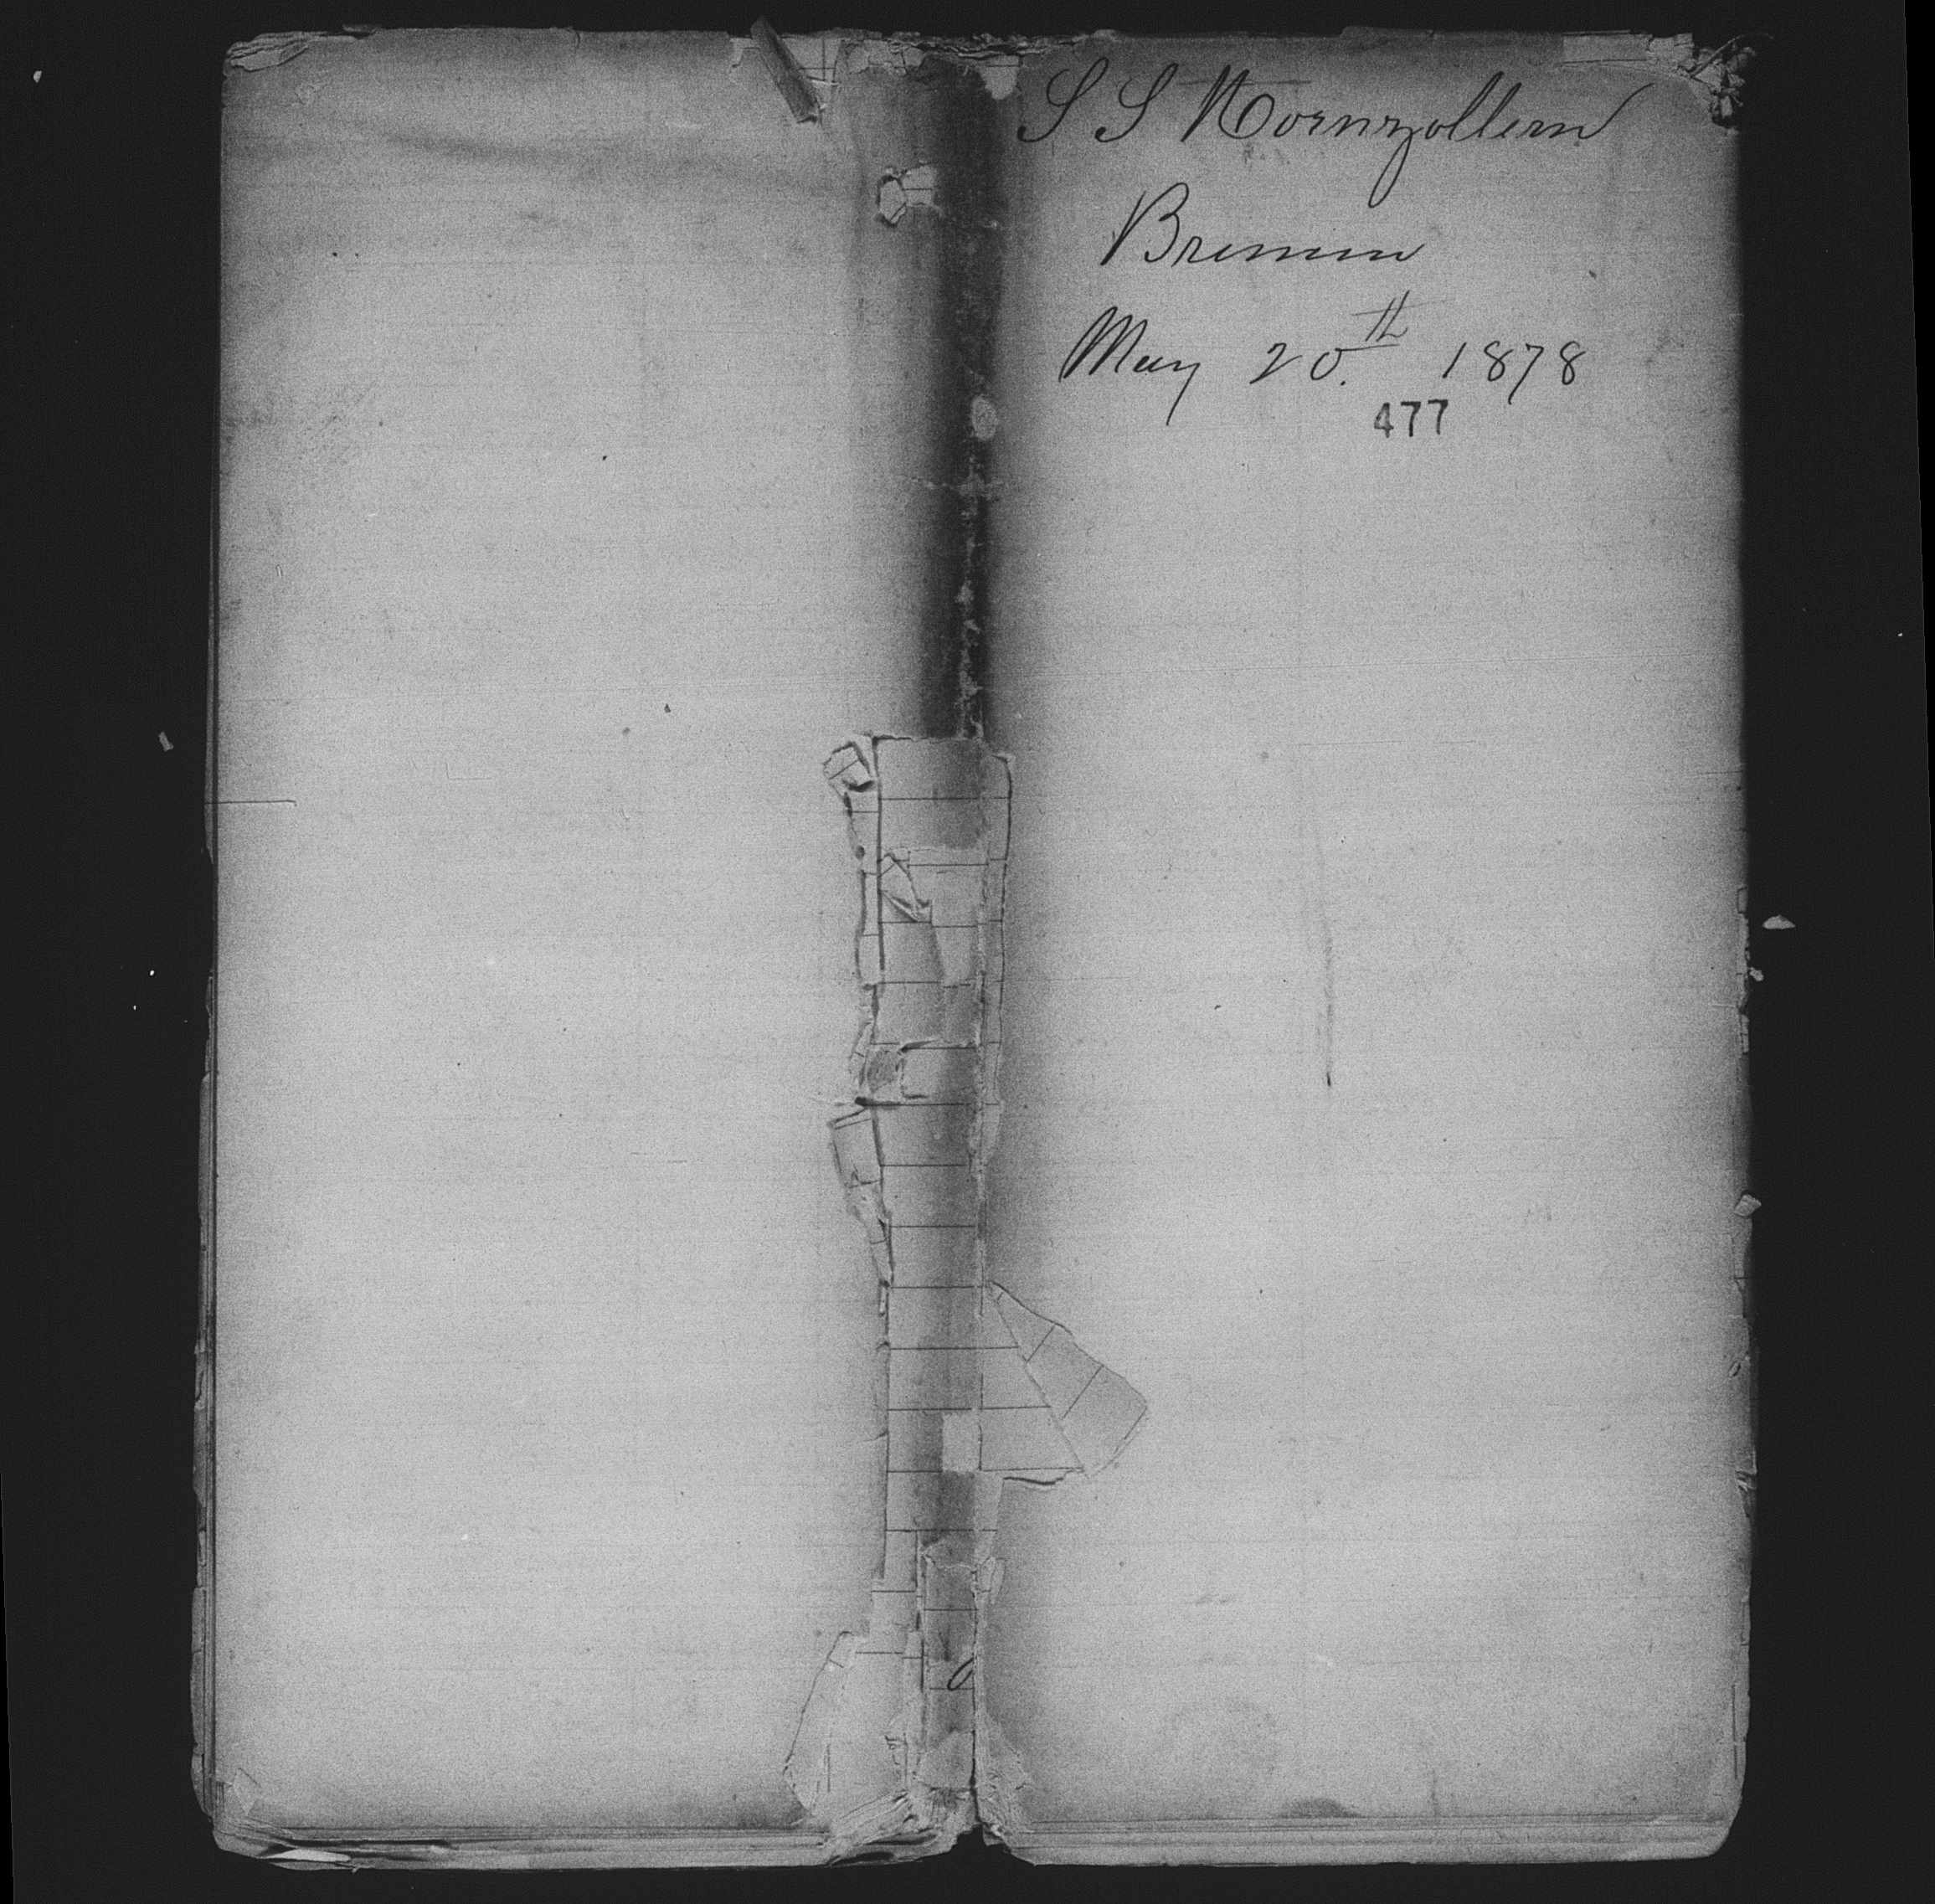 S S Hornzollern
Bremen
May 20.th 1878
477